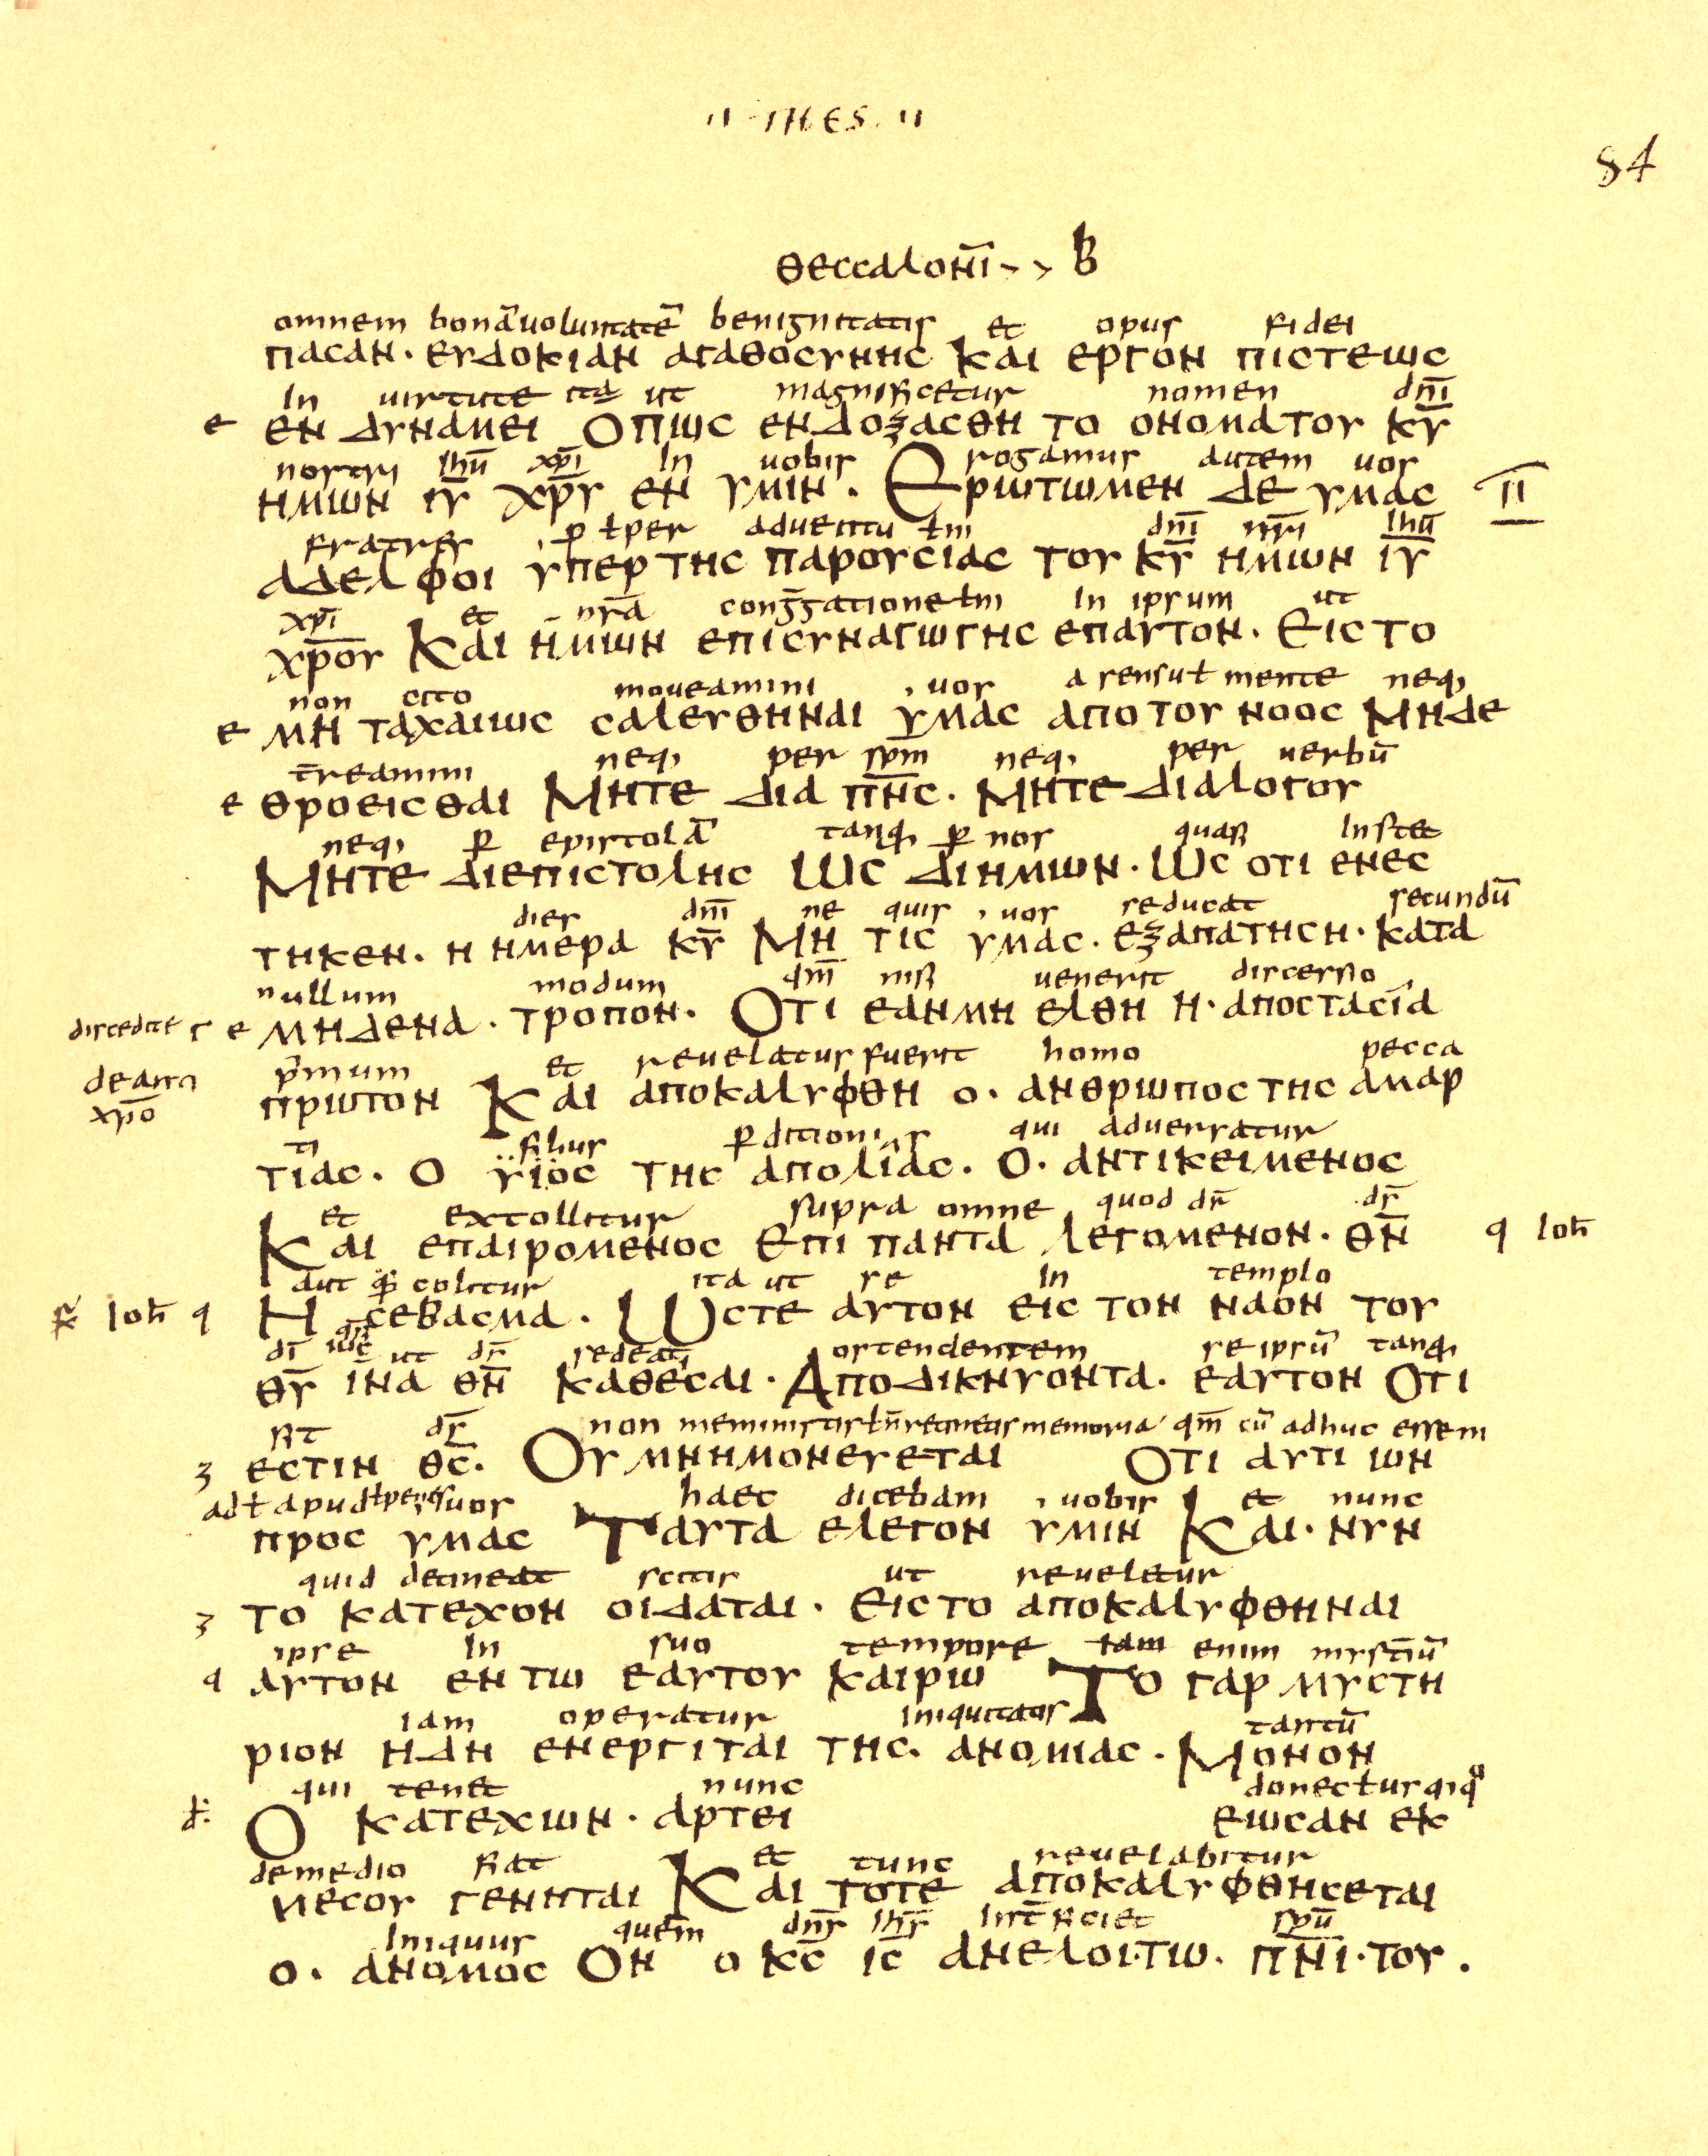 II THES. II
84
θεccαλονι̅ B
omnem bonā uoluntatē benignitatis et opus fidei
παcαν · ευδοκιαν αγαθοcυνηc Και εργον πιcτεωc
In uirtute ita ut magnificetur nomen dn̅i
e εν δυναμει Οπωc ενδοξαcθη το ονοματου κ̅υ̅
nostri ihu̅ xp̅i In uobis rogamus autem uos
ημων ι̅υ̅ χρ̅υ εν υμιν · Ερωτωμεν δε υμαc II
fratres p̱ ł per aduentu ł m dn̅i nr̅i ihu̅
αδελφοι υπερ τηc παρουcιαc του κ̅υ̅ ημων ι̅υ̅
xp̅i et nr̅a cong̅gatione ł m In ipsum ut
χρ̅ου Και ημων επιcυναγωγηc επαυτον · Ειc το
non cito moueamini uos a sensu ł mente neq,
e μη ταχαιωc cαλευθηναι υμαc απο του νοοc Μηδε
t̅reamini neq, per spm̅ neq, per uerbū
e θροειcθαι Μητε δια π̅ν̅c · Μητε διαλογου
neq, p̱ epistolā tanq, p̱ nos quasi Instet
Μητε διεπιcτοληc Ωc διημων · Ωc οτι ενεc
dies dn̅i ne quis uos seducat secundū
τηκεν · η ημερα κ̅υ̅ Μη τιc υμαc · εξαπατηcη · κατα
nullum modum qm̅ nisi uenerit discessio
discedite s e μηδενα · τροπον · Οτι εανμη ελθη η · αποcταcια
p̅mum et reuelatus fuerit homo pecca
de anti xp̅o πρωτον Και αποκαλυφθη ο · ανθρωποc τηc αμαρ
ti filius p̱ditionis qui aduersatur
τιαc · ο υιοc τηc απολιαc · ο · αντικειμενοc
et extollitur supra omne quod dr̅ ds̅
Και επαιρομενοc Επι παντα λεγομενον · θ̅ν̅ q Ioh̅
aut qd̅ colitur ita ut se In templo
Ioh̅ q Η cεβαcμα · Ωcτε αυτον ειc τον ναον του
di̅ ut ds̅ sedeat ostendentem se ipsū tanq,
θ̅υ̅ ινα θ̅ν̅ καθεcαι · Αποδικνυοντα · εαυτον Οτι
sit ds̅ non meministis ł n̅ retinetis memoria qm̅ cū adhuc essem
ȝ εcτιν θ̅c̅ · Ου μνημονευεται Οτι αυτι ων
ad ł apud ł penes uos haec dicebam uobis et nunc
προc υμαc Ταυτα ελεγον υμιν Και · νυν
quid detineat scitis ut reueletur
ȝ το κατεχον οιδαται · Ειc το αποκαλυφθηναι
ipse In suo tempore iam enim mysteriū
q αυτον εν τω εαυτου καιρω Το γαρ μυcτη
iam operatur Iniquitatis tantū
ριον ηδη ενεργιται τηc · ανομιαc · Μονον
qui tenet nunc donec
đ: Ο κατεχων · αρτει εωcαν εκ
de medio fiat et tunc reuelabitur
μεcου γενηται Και τοτε αποκαλυφθηcεται
Iniquus quem dn̅s ihs̅ Int̅ficiet spū
ο · ανομοc Ον ο κ̅c̅ ι̅c̅ ανελοι · τω · π̅ν̅ι · του .